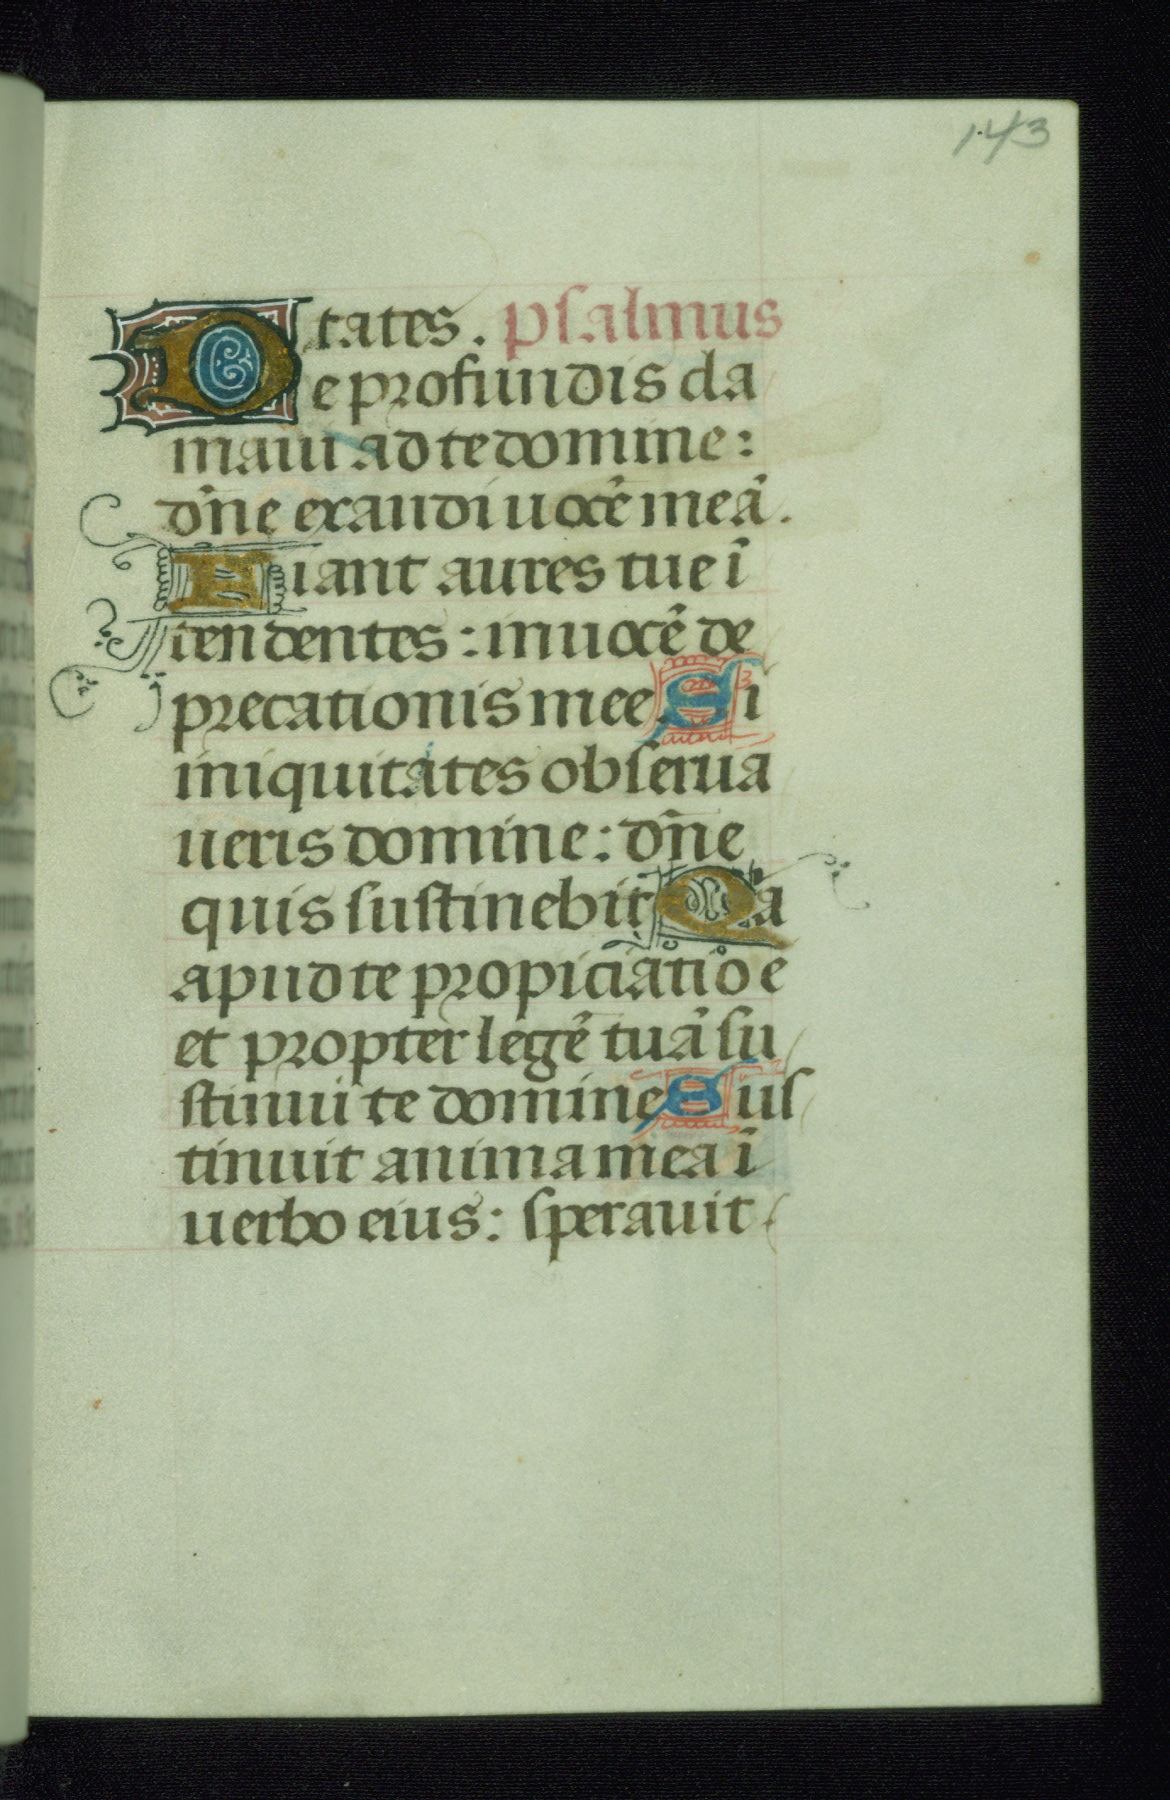 143
tates. psalmus
De profundis cla
maui ad te domine:
dñe exaudi uocẽ meã.
Fiant aures tue ĩ
tendentes: in uocẽ de
precationis mee. Si
iniquitates obserua
ueris domine: dñe
quis sustinebit Quia
apud te propiciatio ẽ
et propter legẽ tuã su
stinui te domine Sus
tinuit anima mea ĩ
uerbo eius: sperauit